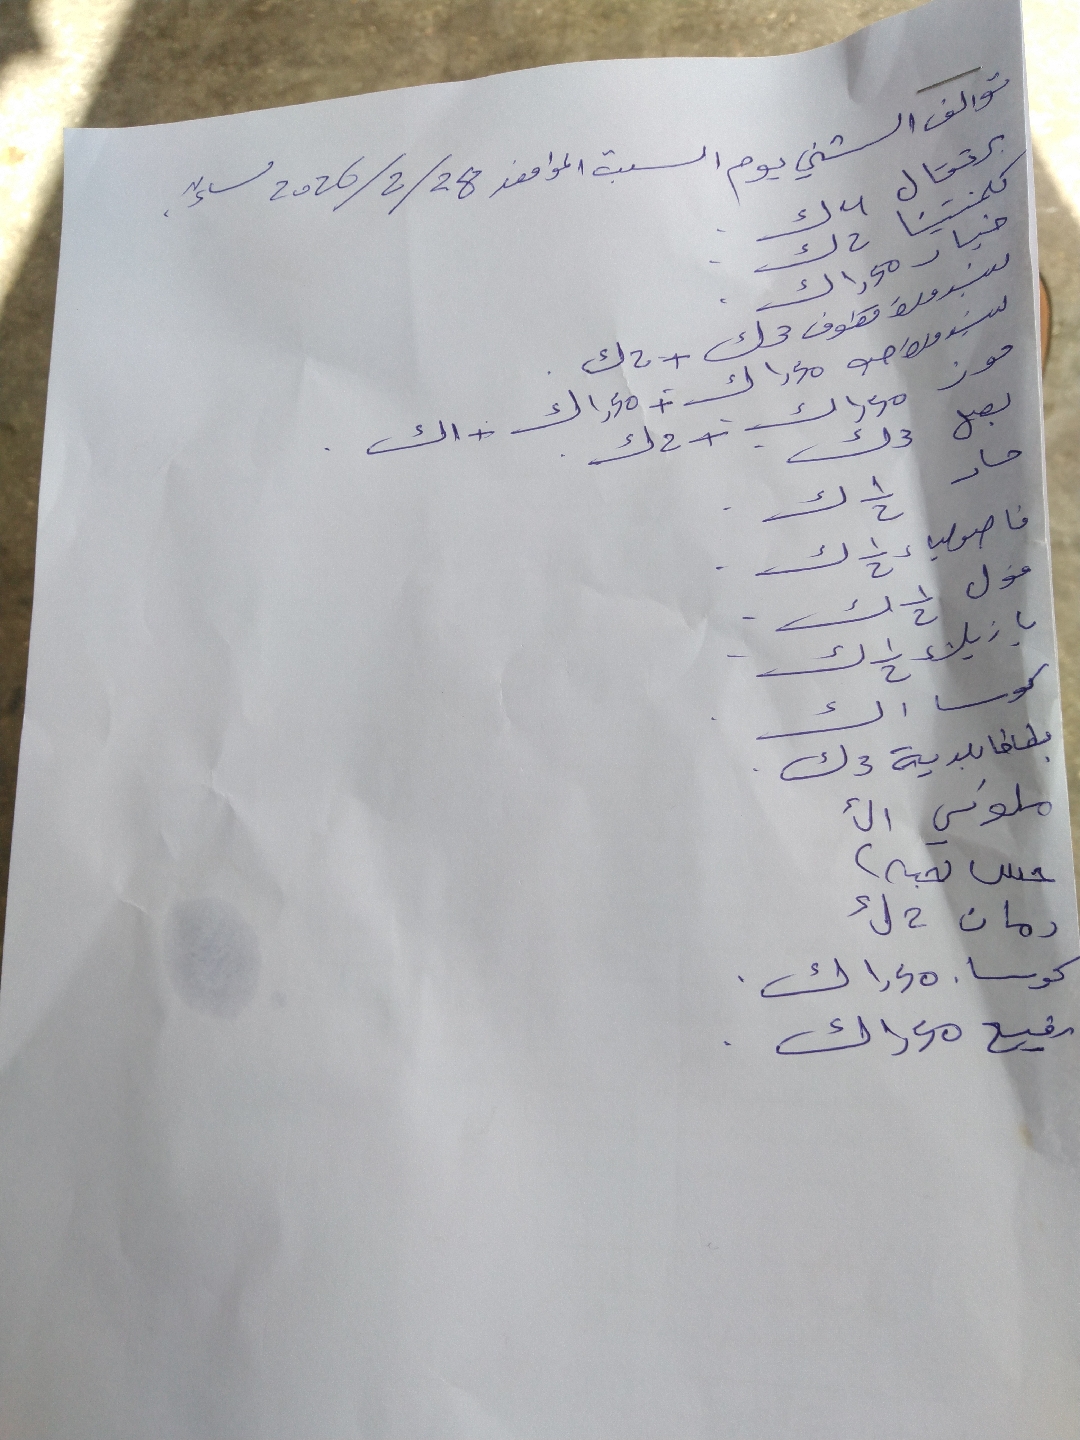 توالف الشني يوم السبت الموافق 2026/2/28 مساءً.
برتقال 4ك.
كلمنتينا 2ك.
خيار 1,50ك.
بندورة قطوف 3ك + 2ك.
بندورة حبه 1,50ك + 1,50ك + 1ك.
موز 1,50ك + 2ك.
بصل 3ك.
حار 1/2 ك.
فاصولياء 1/2 ك.
فول 1/2 ك.
بازيلاء 1/2 ك.
كوسا 1ك.
بطاطا بلدية 3ك.
ملوخي 1ك
خس حبه
رمان 2ك
كوسا. 1,50ك.
رفيع 1,50ك.